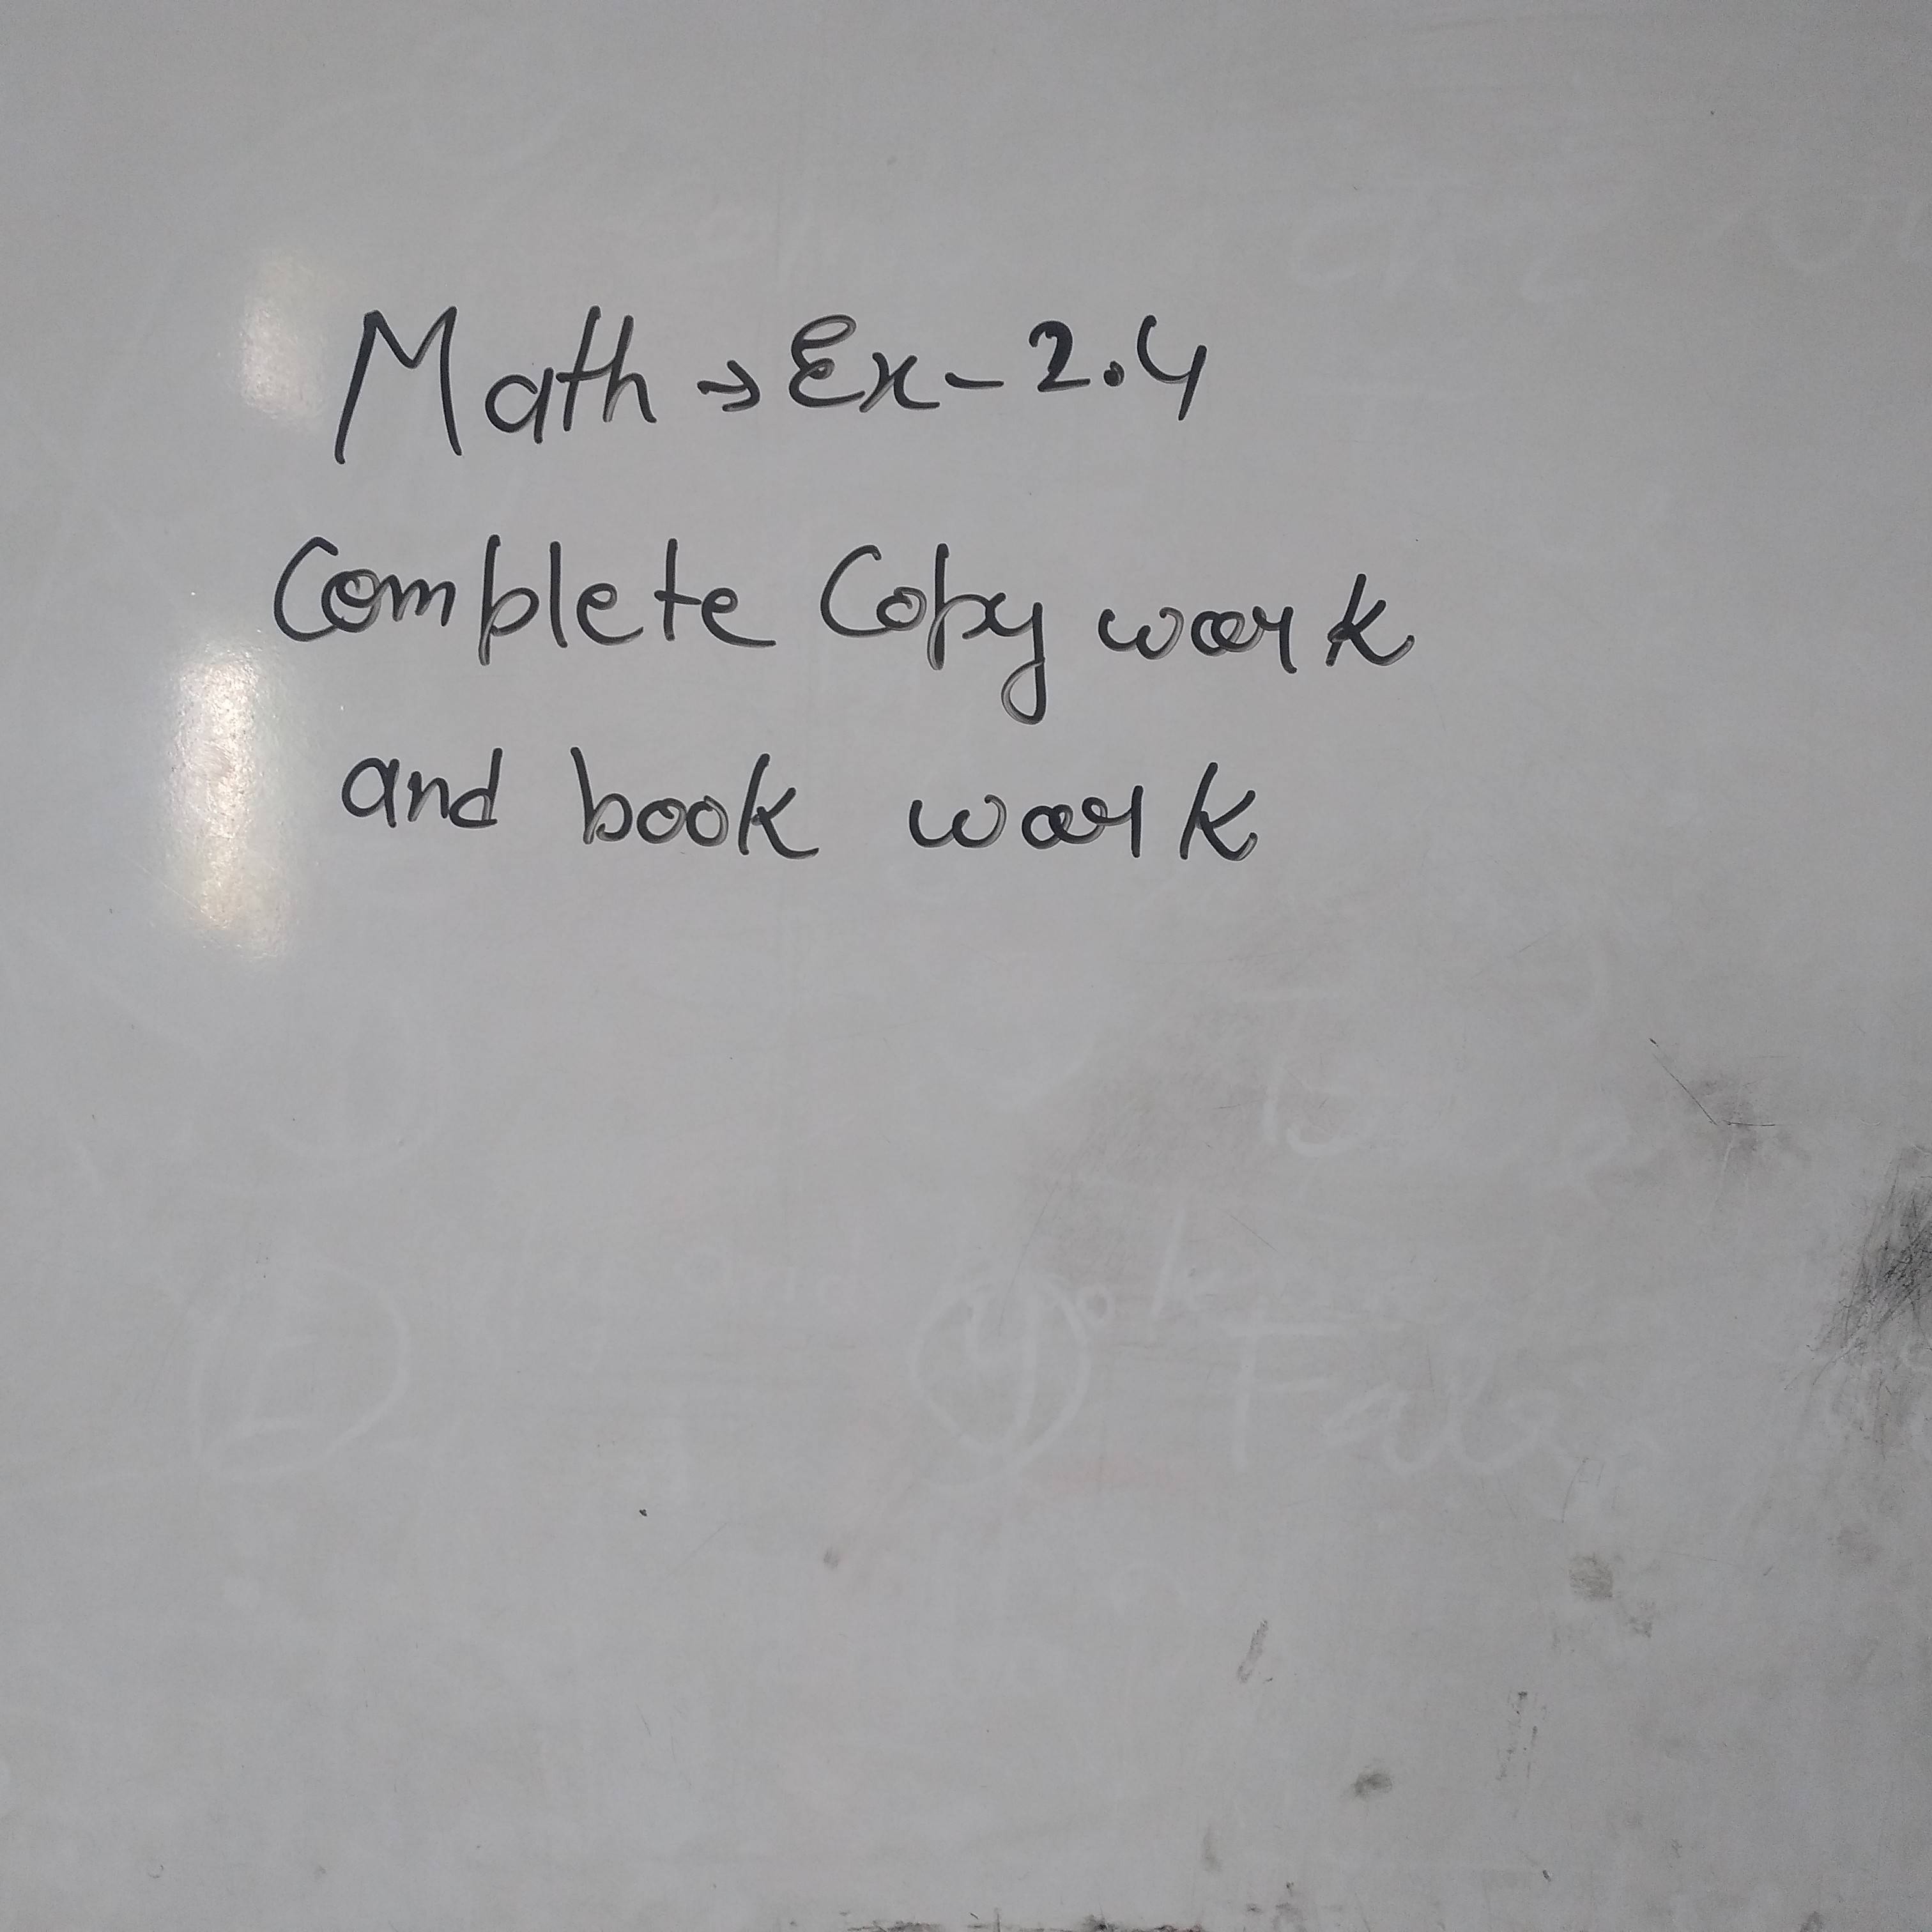 Math → Ex - 2.4
Complete Copy work
and book work